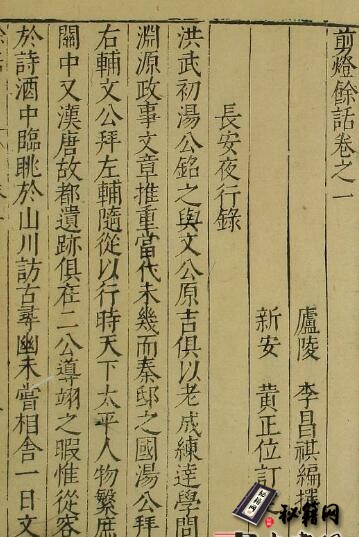 剪燈餘話卷之一
廬陵 李昌祺編撰
新安 黃正位訂
長安夜行錄
洪武初湯公銘之與文公原吉俱以老成練達學問
淵源政事文章推重當代未幾而秦邸之國湯公拜
右輔文公拜左輔隨從以行時天下太平人物繁庶
關中又漢唐故都遺跡俱在二公導翊之暇惟從容
於詩酒中臨眺於山川訪古尋幽未嘗相舍一日文
秘籍网